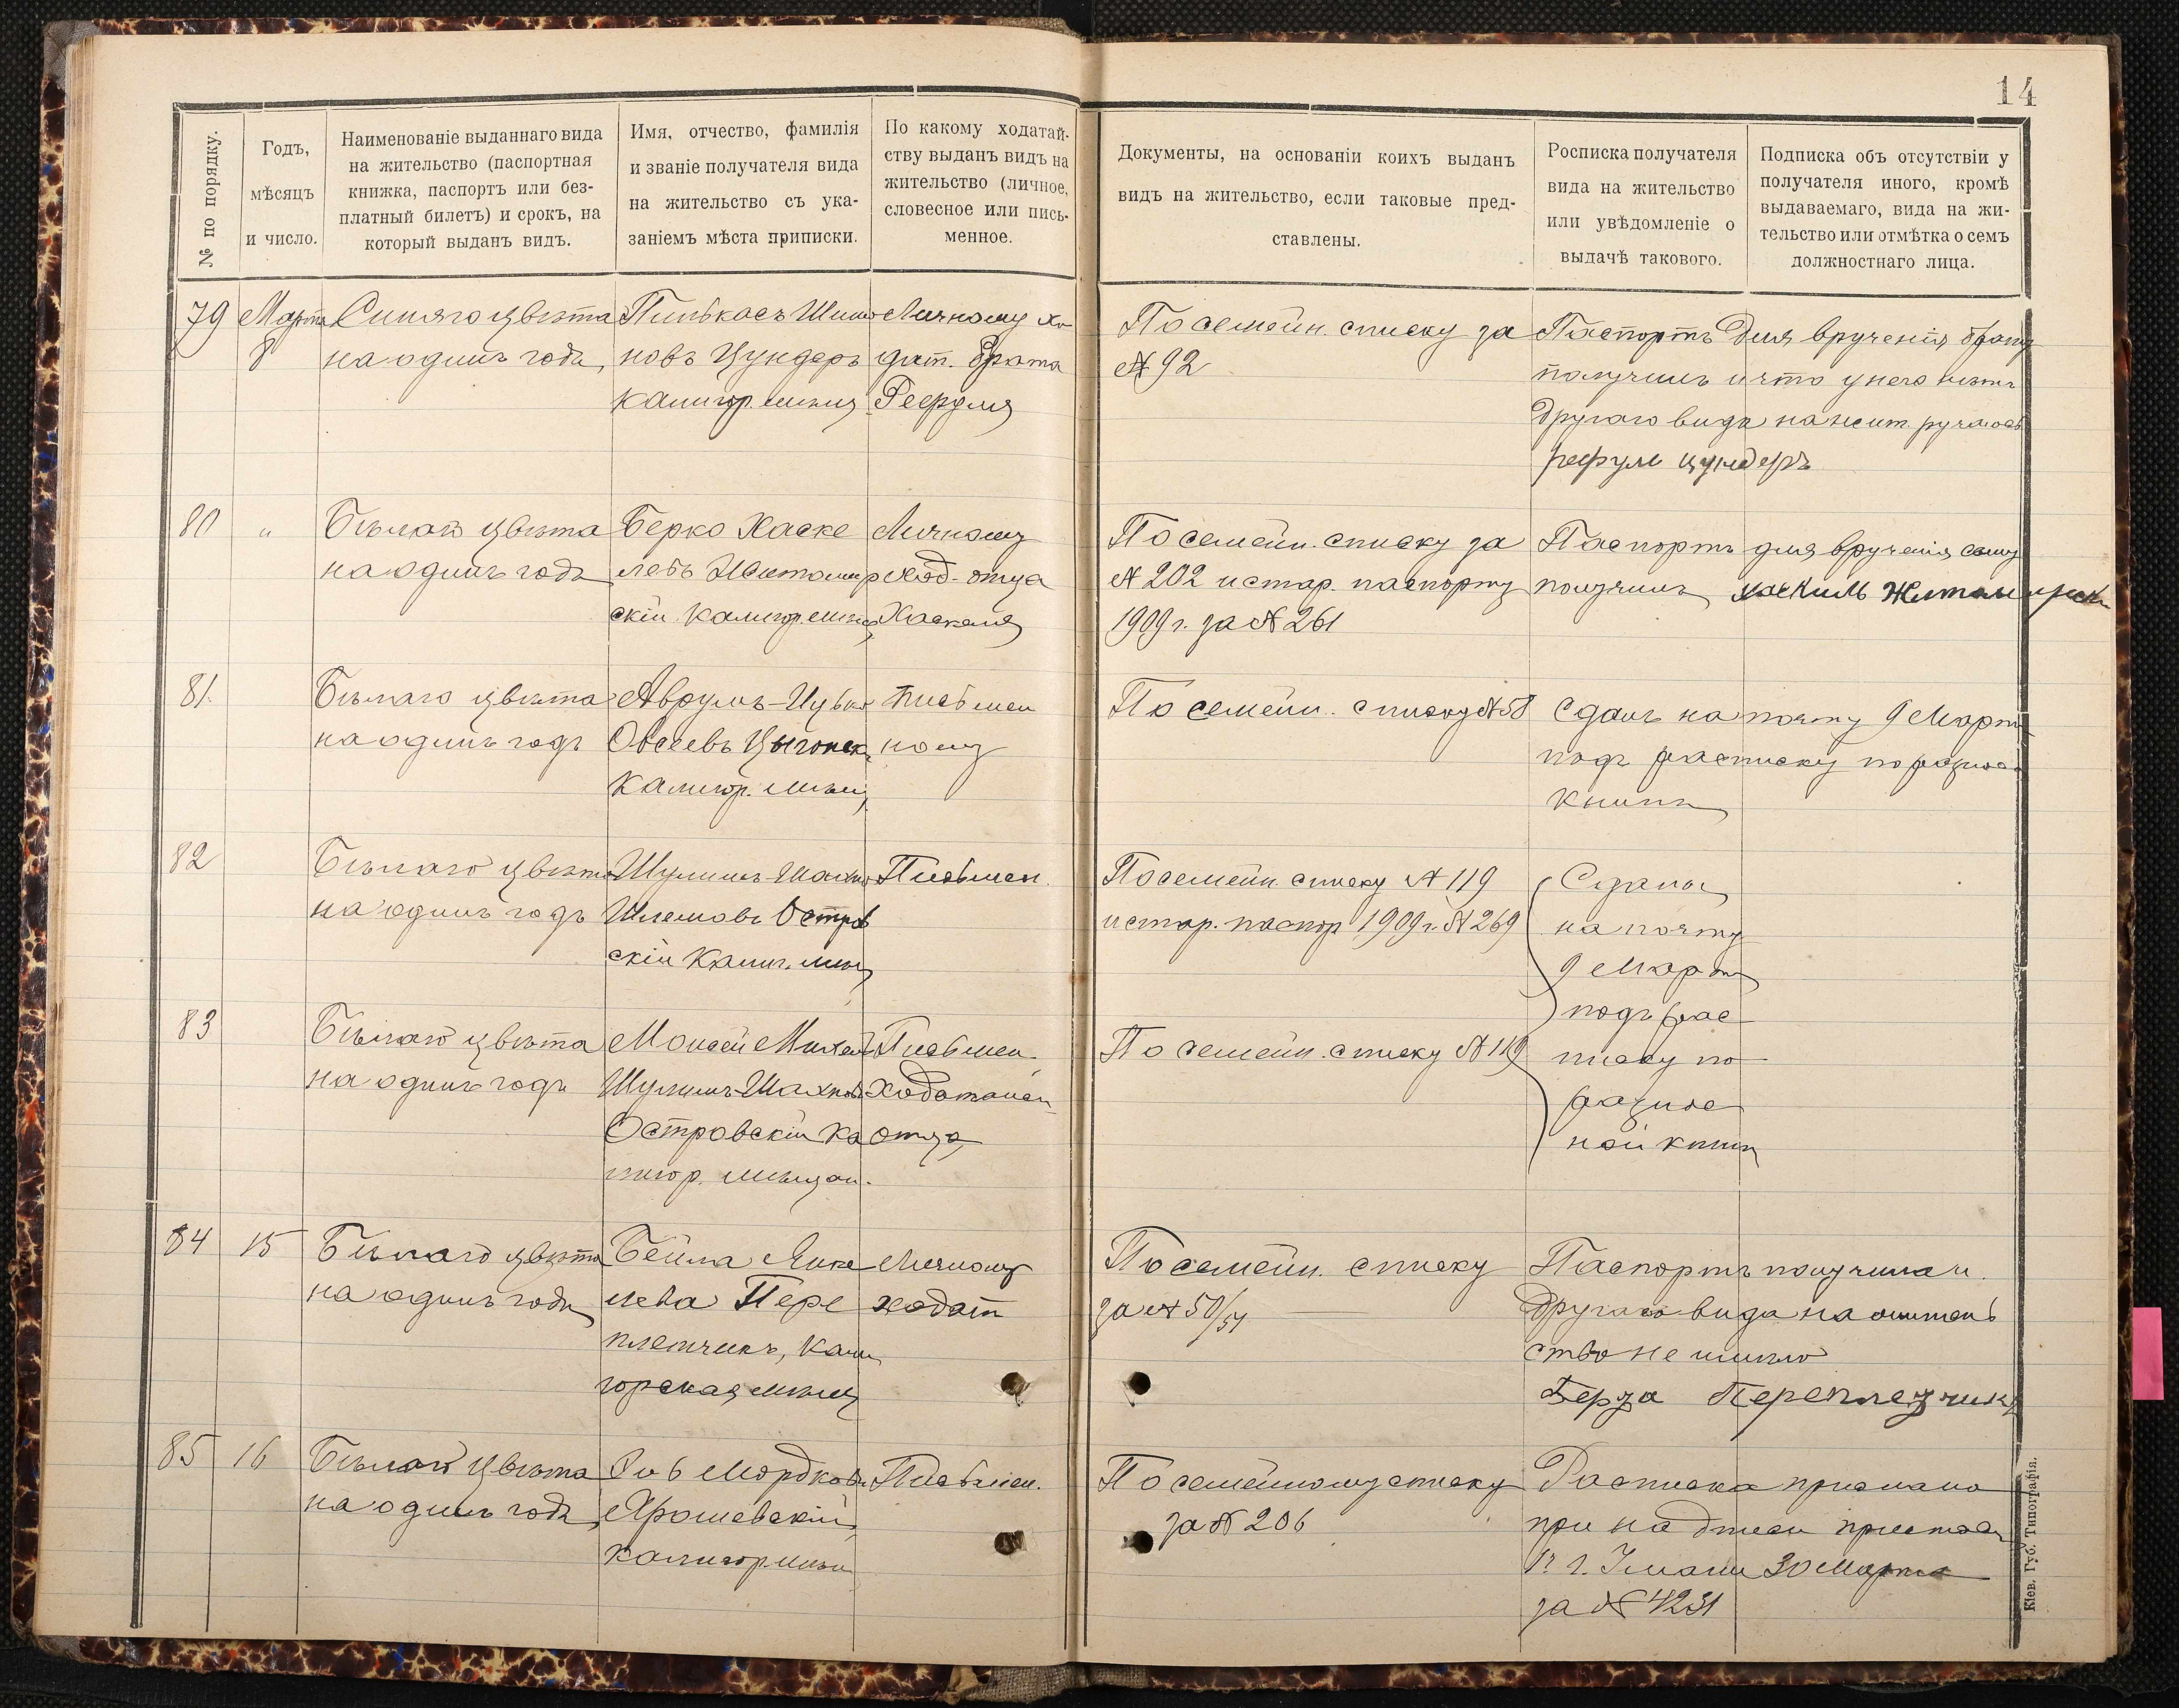 14
№ по порядку.
Годъ,
мѣсяцъ
и число.
Наименованіе выданнаго вида
на жительство (паспортная
книжка, паспортъ или без-
платный билетъ) и срокъ, на
который выданъ видъ.
Имя, отчество, фамилія
и званіе получателя вида
на жительство съ ука-
заніемъ мѣста приписки.
По какому ходатай-
ству выданъ видъ на
жительство (личное,
словесное или пись-
менное.
Документы, на основаніи коихъ выданъ
видъ на жительство, если таковые пред-
ставлены.
Росписка получателя
вида на жительство
или увѣдомленіе о
выдачѣ такового.
Подписка объ отсутствіи у
получателя иного, кромѣ
выдаваемаго, вида на жи-
тельство или отмѣтка о семъ
должностнаго лица.
79
Марта
8
Синяго цвѣта
на одинъ годъ,
Пинькасъ Шимо
новъ Цундеръ
калигор. мѣщ
Личному хо
дат. брата
Рефуля
По семейн. списку за
№ 92
Паспортъ для врученія брату
получилъ и что у него нѣтъ
другаго вида на жит. ручаюсь
рефулъ цундеръ
80
"
Бѣлаго цвѣта
на одинъ годъ
Берко Хаске
левъ Житомир
скій калигор. мѣщ
Личному
ход. отца
Хаскеля
По семейн. списку за
№ 202 и стар. паспорту
1909 г. за № 261
Паспортъ для врученія сыну
получилъ хаскиль
81.
Бѣлаго цвѣта
на одинъ годъ
Аврумъ-Ицько
Овсеевъ
калигор. мѣщ
Письмен
ному
По семейн. списку № 58
Сданъ на почту 9 Марта
подъ расписку по разнос.
книгѣ
82
Бѣлаго цвѣта
на одинъ годъ
Шулимъ-Шахно
Шлемовъ Остров
скій Калиг. мѣщ
Письмен.
По семейн. списку № 119
и стар. паспор 1909 г. № 269
Сданы
на почту
9 Марта
подъ рас
писку по
разнос
ной книгѣ
83
Бѣлаго цвѣта
на одинъ годъ
Моисей Михель
Шулимъ-Шахновъ
Островскій ка
лигор. мѣщан.
Письмен.
ходатайст
отца
По семейн. списку № 119
84
15
Бѣлаго цвѣта
на одинъ годъ
Бейла Янке
лева Пере
плетчикъ, кали
горская мѣщ
Личному
ходат
По семейн. списку
за № 50/51
Паспортъ получила и
другаго вида на житель
ство не имѣю
Переплетчикъ
85
16
Бѣлаго цвѣта
на одинъ годъ,
Мордковъ
Ярошевскій
калигор мѣщ
Письмен.
По семейному списку
за № 206
Расписка прислана
при надписи пристава
г. Умани 30 Марта
за № 4231
Кіев. Губ. Типографія.